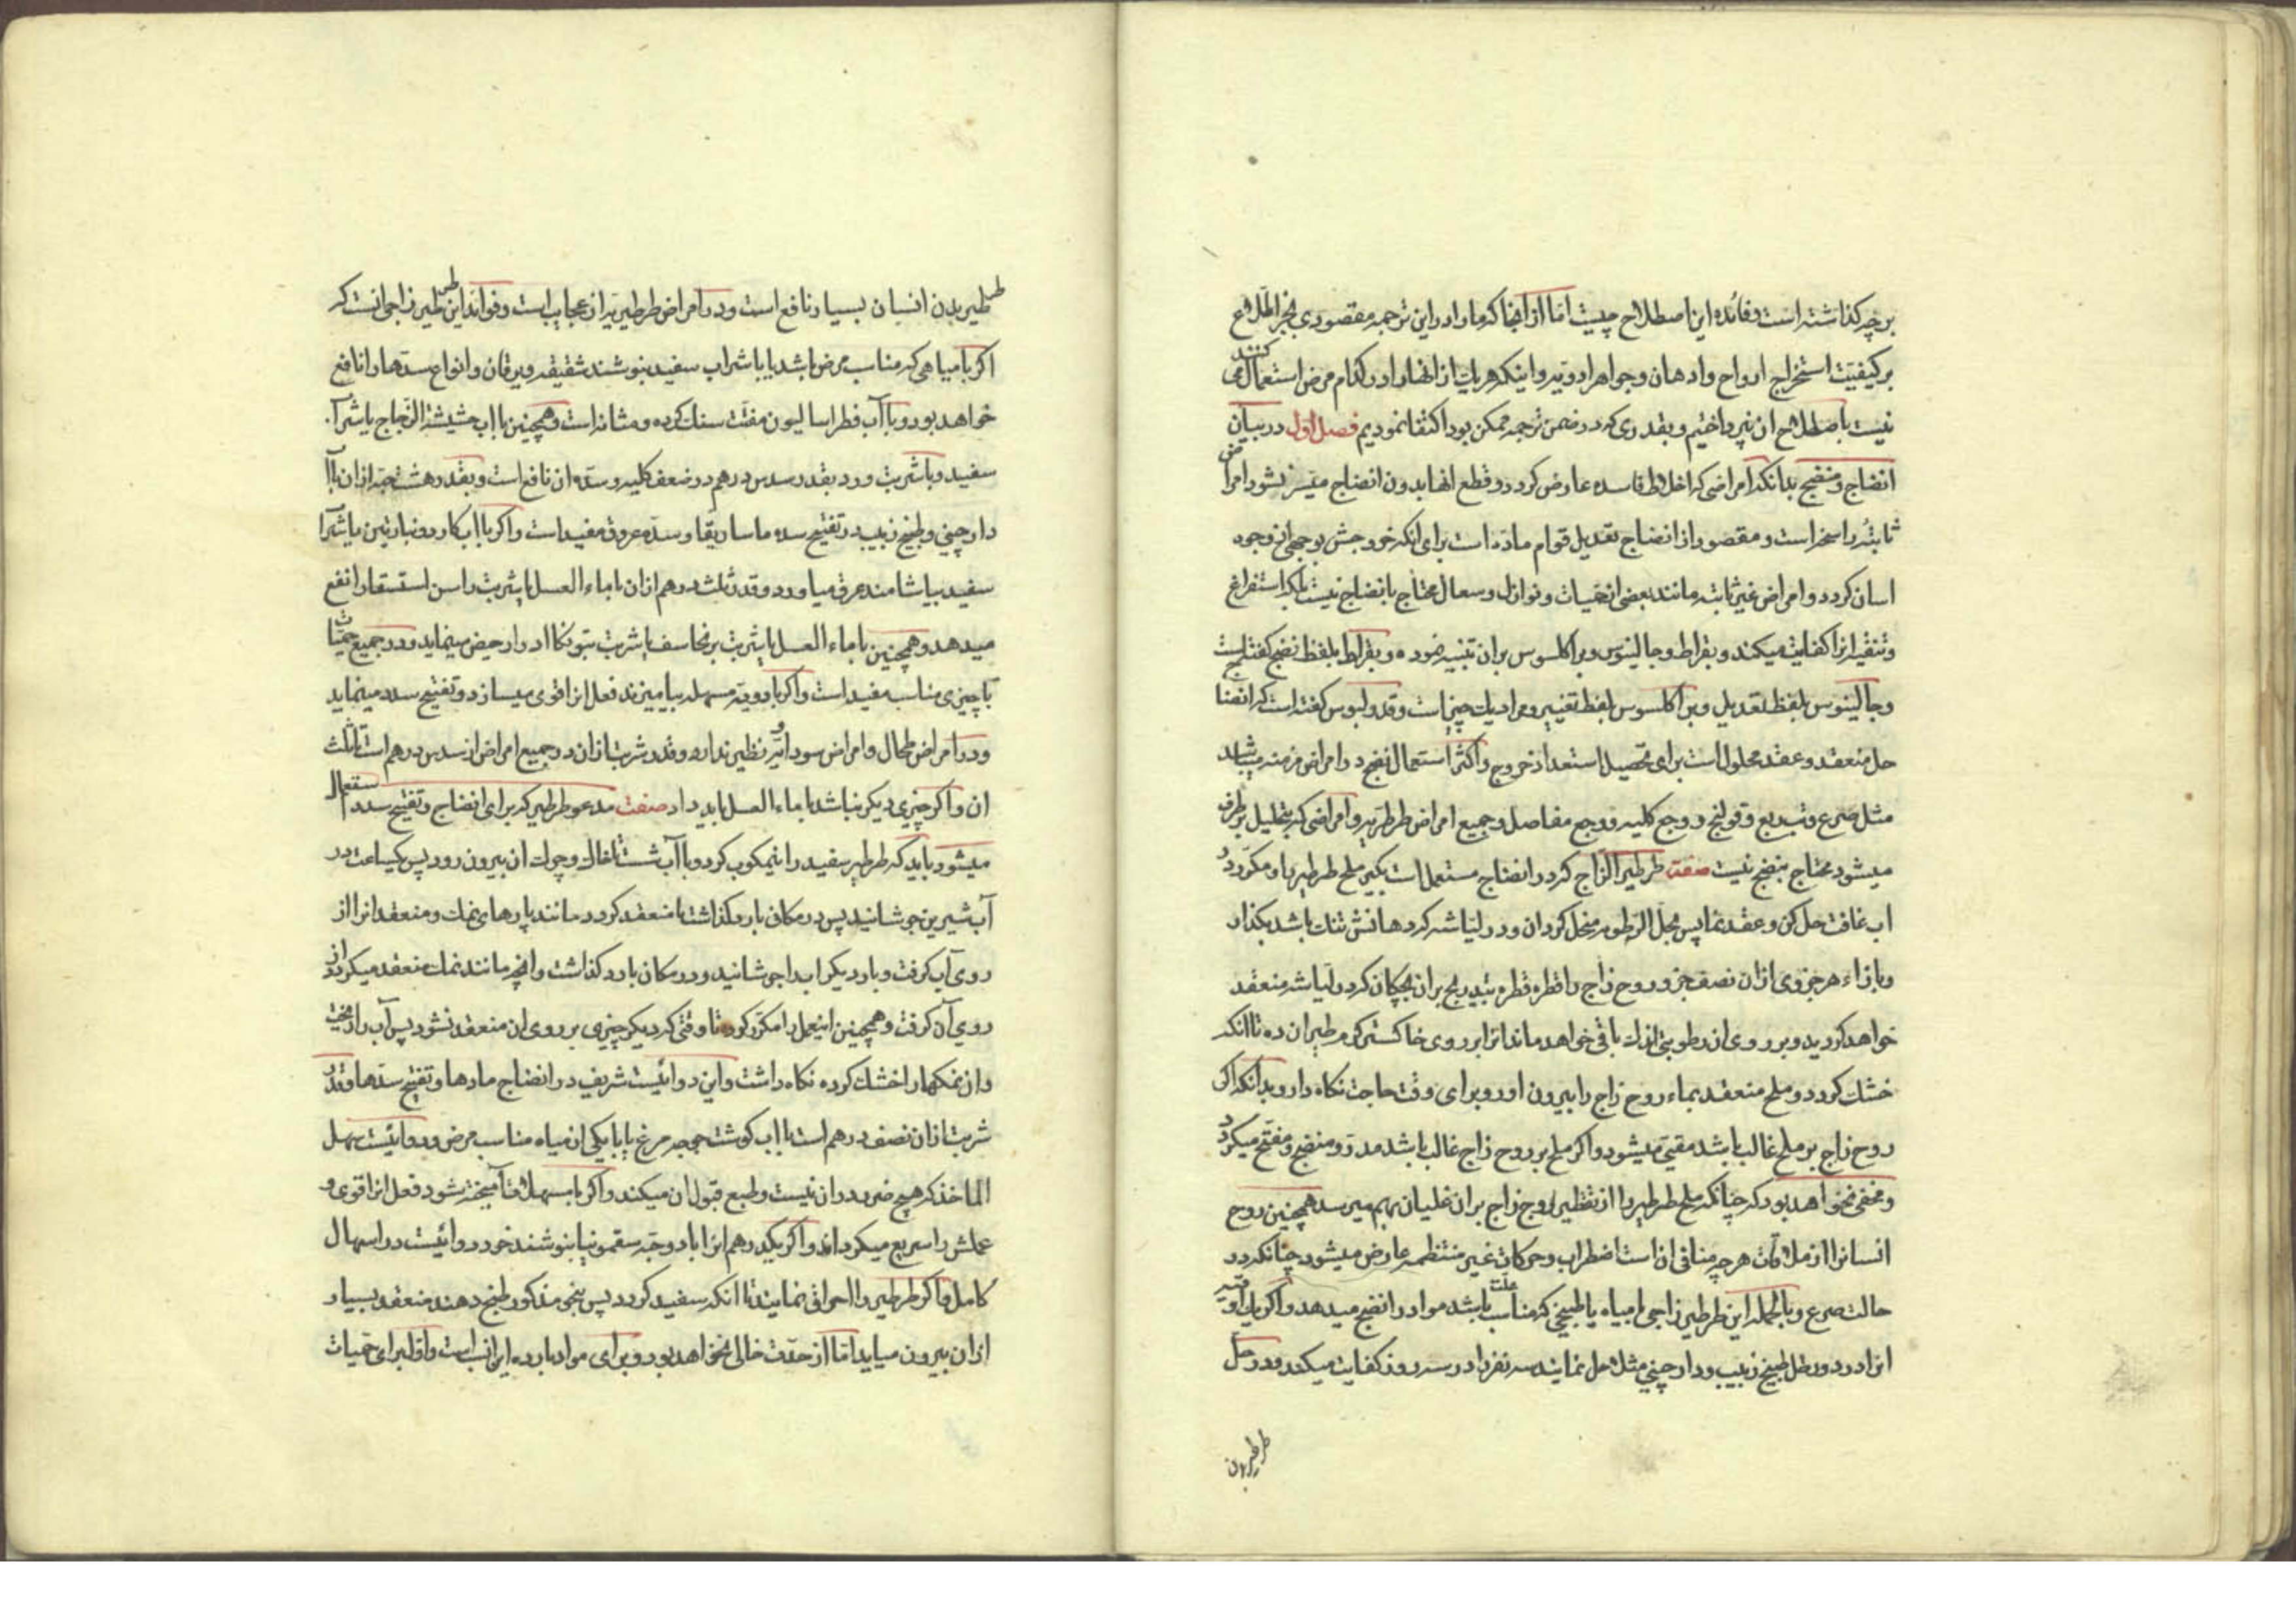 بر چه کذاشته است و فائده این اصطلاح چیست امّا از آنجا که ما را در این ترجمه مقصودی بجز اطّلاع
بر کیفیّت استخراج ارواح و ادهان و جواهر ادویّه و اینکه هریک از انها را در کدام مرض استعمال می کنند
نیست باصطلاح ان نپرداختیم و بقدری که در ضمن ترجمه ممکن بود اکتفا نمودیم فصل اول در بیان
انضاج و منضج بدانکه امراضی که از اخلاط فاسده عارض کردد و قطع انها بدون انضاج میّسر نشود امراض
ثابتهٔ راسخه است و مقصود از انضاج تعدیل قوام مادّه است برای انکه خروجش بوجهی از وجوه
اسان کردد و امراض غیر ثابته مانند بعضی از حمّیات و نوازل و سعال محتاج بانضاج نیست بلکه استفراغ
و تنقیه انرا کفایت میکند و بقراط و جالینوس و براکلسوس بران تنبیه نموده و بقراط بلفظ نضج کفته است
و جالینوس بلفظ تعدیل و براکلسوس بلفظ تغییر و مراد یک چیز است و قدولیوس کفته است که انضاج
حل منعقد و عقد محلول است برای تحصیل استعداد خروج و اکثر استعمال نضج در امراض مزمنه میباشد
مثل صرع و تب ربع و قولنج و وجع کلیه و وجع مفاصل و جمیع امراض طرطریّه و امراضی که بتحلیل برطرف
میشود محتاج بنضج نیست صفت طرطیر الزّاج که در انضاج مستعمل است بکیر ملح طرطیر را و مکرّر در
اب غافت حل کن و عقد نما پس بمحلّ الرّطوبه منحل کردان و در لیّاشه که دهانش تنک باشد بکذار
و بازاء هر جزوی ازان نصف جزو روح زاج را قطره قطره بتدریج بران بچکان که در لیاشه منعقد
خواهد کردید و بر روی ان رطوبتی اندک باقی خواهد ماند انرا بر روی خاکستر کرم طیران ده تا انکه
خشک کردد و ملح منعقد بماء روح زاج را بیرون اور و برای وقت حاجت نکاه دار و بدانکه اکر
روح زاج بر ملح غالب باشد مقیّ میشود و اکر ملح بر روح زاج غالب باشد مدرّ و منضج و مفتّح میکردد
و مخفی نخواهد بود که چنانکه ملح طرطیر را از تقطیر روح زاج بران غلیان بهم میرسد همچنین روح
انسانرا از ملاقات هرچه منافی ان است اضطراب و حرکات غیر منتظمه عارض میشود چنانکه در
حالت صرع و بالجمله این طرطیر زاجی با میاه یا طبیخی که مناسب علت باشد مواد را نضج میدهد و اکر یک اوقیه
انرا در دو رطل طبیخ زبیب و دارچینی مثلا حل نمایند سه نفر را در سه روز کفایت میکند و در حل
طرطیر بدن
طرطیر بدن انسان بسیار نافع است و در امراض طرطیریّه از عجایب است و فواند این طرطیر زاجی انست که
اکر با میاهی که مناسب مرض باشد یا با شراب سفید بنوشند شقیقه و یرقان و انواع سدّها را نافع
خواهد بود و با آب فطراسالیون مفتّت سنک کرده و مثانه است و همچنین با اب حشیشة الزّجاج یا شراب
سفید و با شربت ورد بقدر سدس درهم در ضعف کلیه و سدّه ان نافع است و بقدر هشت حبّه ازان با آب
دارچینی و طبیخ زبیب در تفتیح سده ماساریقا و سدّه عروق مفید است و اکر با اب کاردونبارتین یا شراب
سفید بیاشامند عرق میاورد و قدر ثلث درهم ازان با ماء العسل یا شربت راسن استسقا را نفع
میدهد و همچنین با ماء العسل یا شربت برنجاسف یا شربت بتونکا ادرار حیض مینماید و در جمیع حمّیات
با چیزی مناسب مفید است و اکر با ادویّه مسهله بیامیزند فعل انرا قوی میسازد و تفتیح سدد مینماید
و در امراض طحال و امراض سوداویّه نظیر ندارد و قدر شربت ازان در جمیع امراض از سدس درهم است تا ثلث
ان و اکر چیزی دیکر نباشد با ماء العسل باید داد صفت مدعو طرطیر که برای انضاج و تفتیح سدد استعمال
میشود باید که طرطیر سفید را نیمکوب کرد و با آب شست تا خاک و چرک ان بیرون رود پس یکساعت در
آب شیرین جوشانید پس در مکان بارد کذاشت تا منعقد کردد مانند پارهای نمک و منعقد انرا از
روی آب کرفت و بار دیکر اب را جوشانید و در مکان بارد کذاشت و انچه مانند نمک منعقد میکردد از
روی آن کرفت و همچنین اینعمل را مکرّر کرد تا وقتی که دیکر چیزی بر روی ان منعقد نشود پس آب را ریخت
و ان نمکها را خشک کرده نکاه داشت و این دوائیست شریف در انضاج مادها و تفتیح سدّها و قدر
شربت ازان نصف درهم است با اب کوشت جوجه مرغ یا با یکی از میاه مناسب مرض و دوائیست سهل
الماخذ که هیچ ضرر در ان نیست و طبع قبول ان میکند و اکر با مسهلات آمیخته شود فعل انرا قوی و
عملش را سریع میکرداند و اکر یکدرهم انرا با دو حبّه سقمونیا بنوشند خود دوائیست در اسهال
کامل و اکر طرطیر را احراق نمایند تا انکه سفید کردد پس بنحو مذکور طبخ دهند منعقد بسیار
ازان بیرون میاید امّا از حدّت خالی نخواهد بود و برای مواد بارده این انسب است و اوّل برای حمّیات